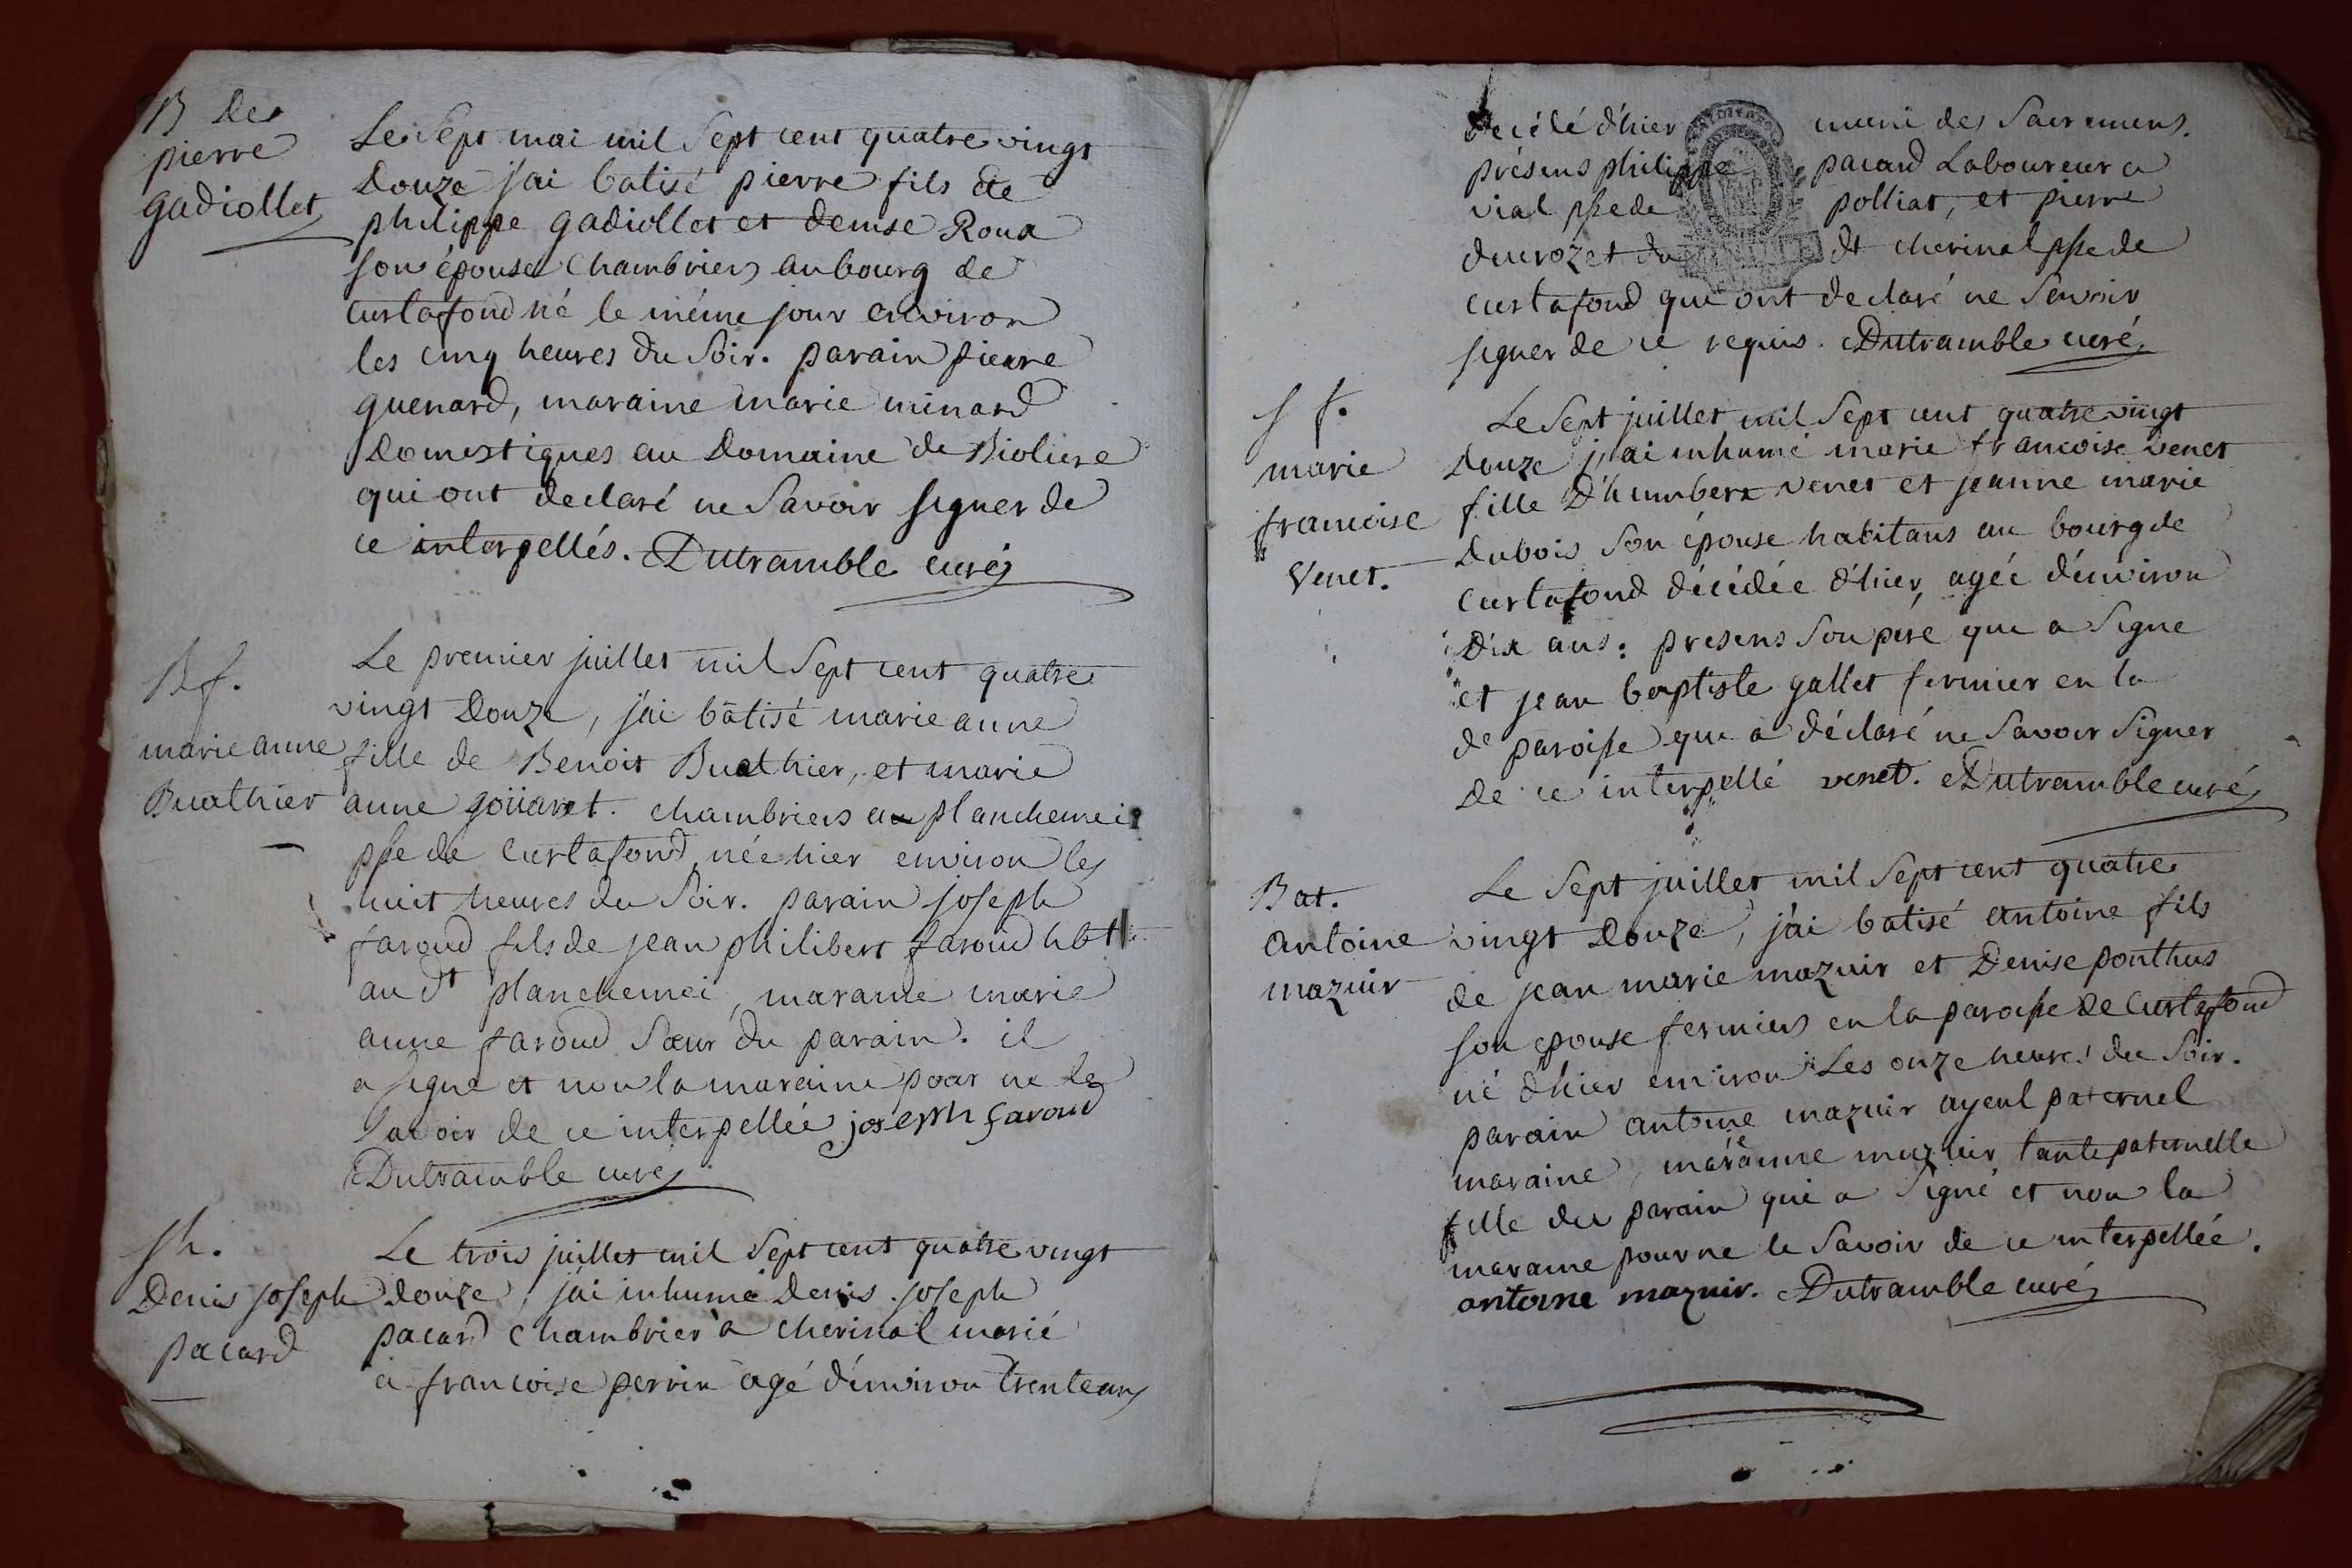 B De
pierre
gadiollet
Le Sept mai mil Sept cent quatre vingt
Douze j'ai batisé pierre fils de
philippe gadiollet et denise Roux
son épouse Chambriers au bourg de
Curtafond né le même jour environ
les cinq heures du Soir. parain pierre
guenard, maraine marie minard
Domestiques au Domaine de Bioliere
qui ont declaré ne Savoir signer de
ce interpellés. Dutramble curé
Bf.
marie anne
Buathier
Le premier juillet mil Sept cent quatre
vingt Douze, j'ai bâtisé marie anne
fille de Benoit Buathier, et marie
anne goüaret. chambriers au planchemei
psse de Curtafond, née hier environ les
huit heures du Soir. parain joseph
faroud fils de jean philibert faroud hbt
au dt planchemei, maraine marie
anne faroud Sœur du parain. il
a signé et non la maraine pour ne le
Savoir de ce interpellée joseph faroud
Dutramble curé
Sh.
Denis joseph
pacard
Le trois juillet mil Sept cent quatre vingt
douze, j'ai inhumé Denis joseph
pacard chambrier à cherinal marié
à francoise perrin agé d'environ trente ans
decédé d'hier muni des Sacremens.
présens philippe pacard Laboureur a
vial psse de polliat, et pierre
ducrozet du dt cherinal psse de
curtafond qui ont declaré ne Savoir
signer de ce requis. Dutramble curé
S f.
marie
francoise
Venet.
Le Sept juillet mil Sept cent quatre vingt
Douze j'ai inhumé marie francoise venet
fille D'humbert venet et jeanne marie
Dubois Son épouse habitans au bourg de
Curtafond décédée d'hier, agée d'environ
Dix ans: presens Son pere qui a Signé
et jean baptiste gallet fermier en la
de paroisse qui a déclaré ne Savoir Signer
de ce interpellé venet. Dutramble curé
Bat.
antoine
mazuir
Le Sept juillet mil Sept cent quatre
vingt Douze, j'ai batisé antoine fils
de jean marie mazuir et Denise ponthus
son epouse fermiers en la paroisse de Curtafond
né d'hier environ Les onze heures du Soir.
parain antoine mazuir ayeul paternel
maraine, marianne mazuir tante paternelle
fille du parain qui a Signé et non la
maraine pour ne le Savoir de ce interpellée.
antoine mazuir. Dutramble curé